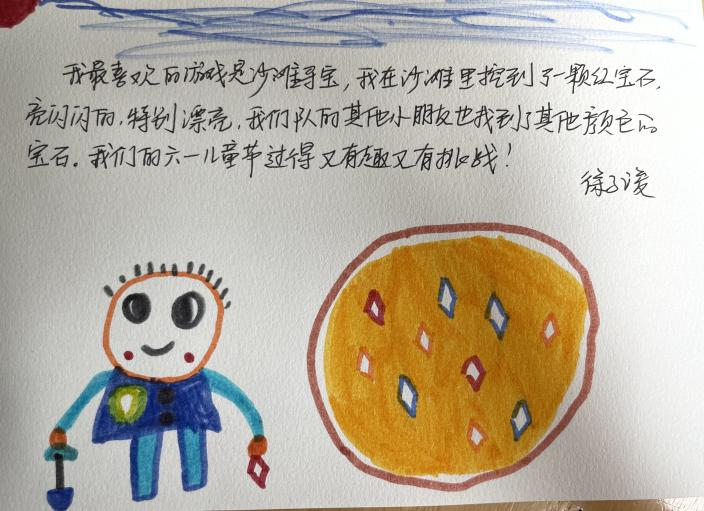 我最喜欢的游戏是沙滩寻宝，我在沙滩里挖到了一颗红宝石，
亮闪闪的，特别漂亮，我们队的其他小朋友也找到了其他颜色的
宝石。我们的六一儿童节过得又有趣又有挑战！
徐子浚